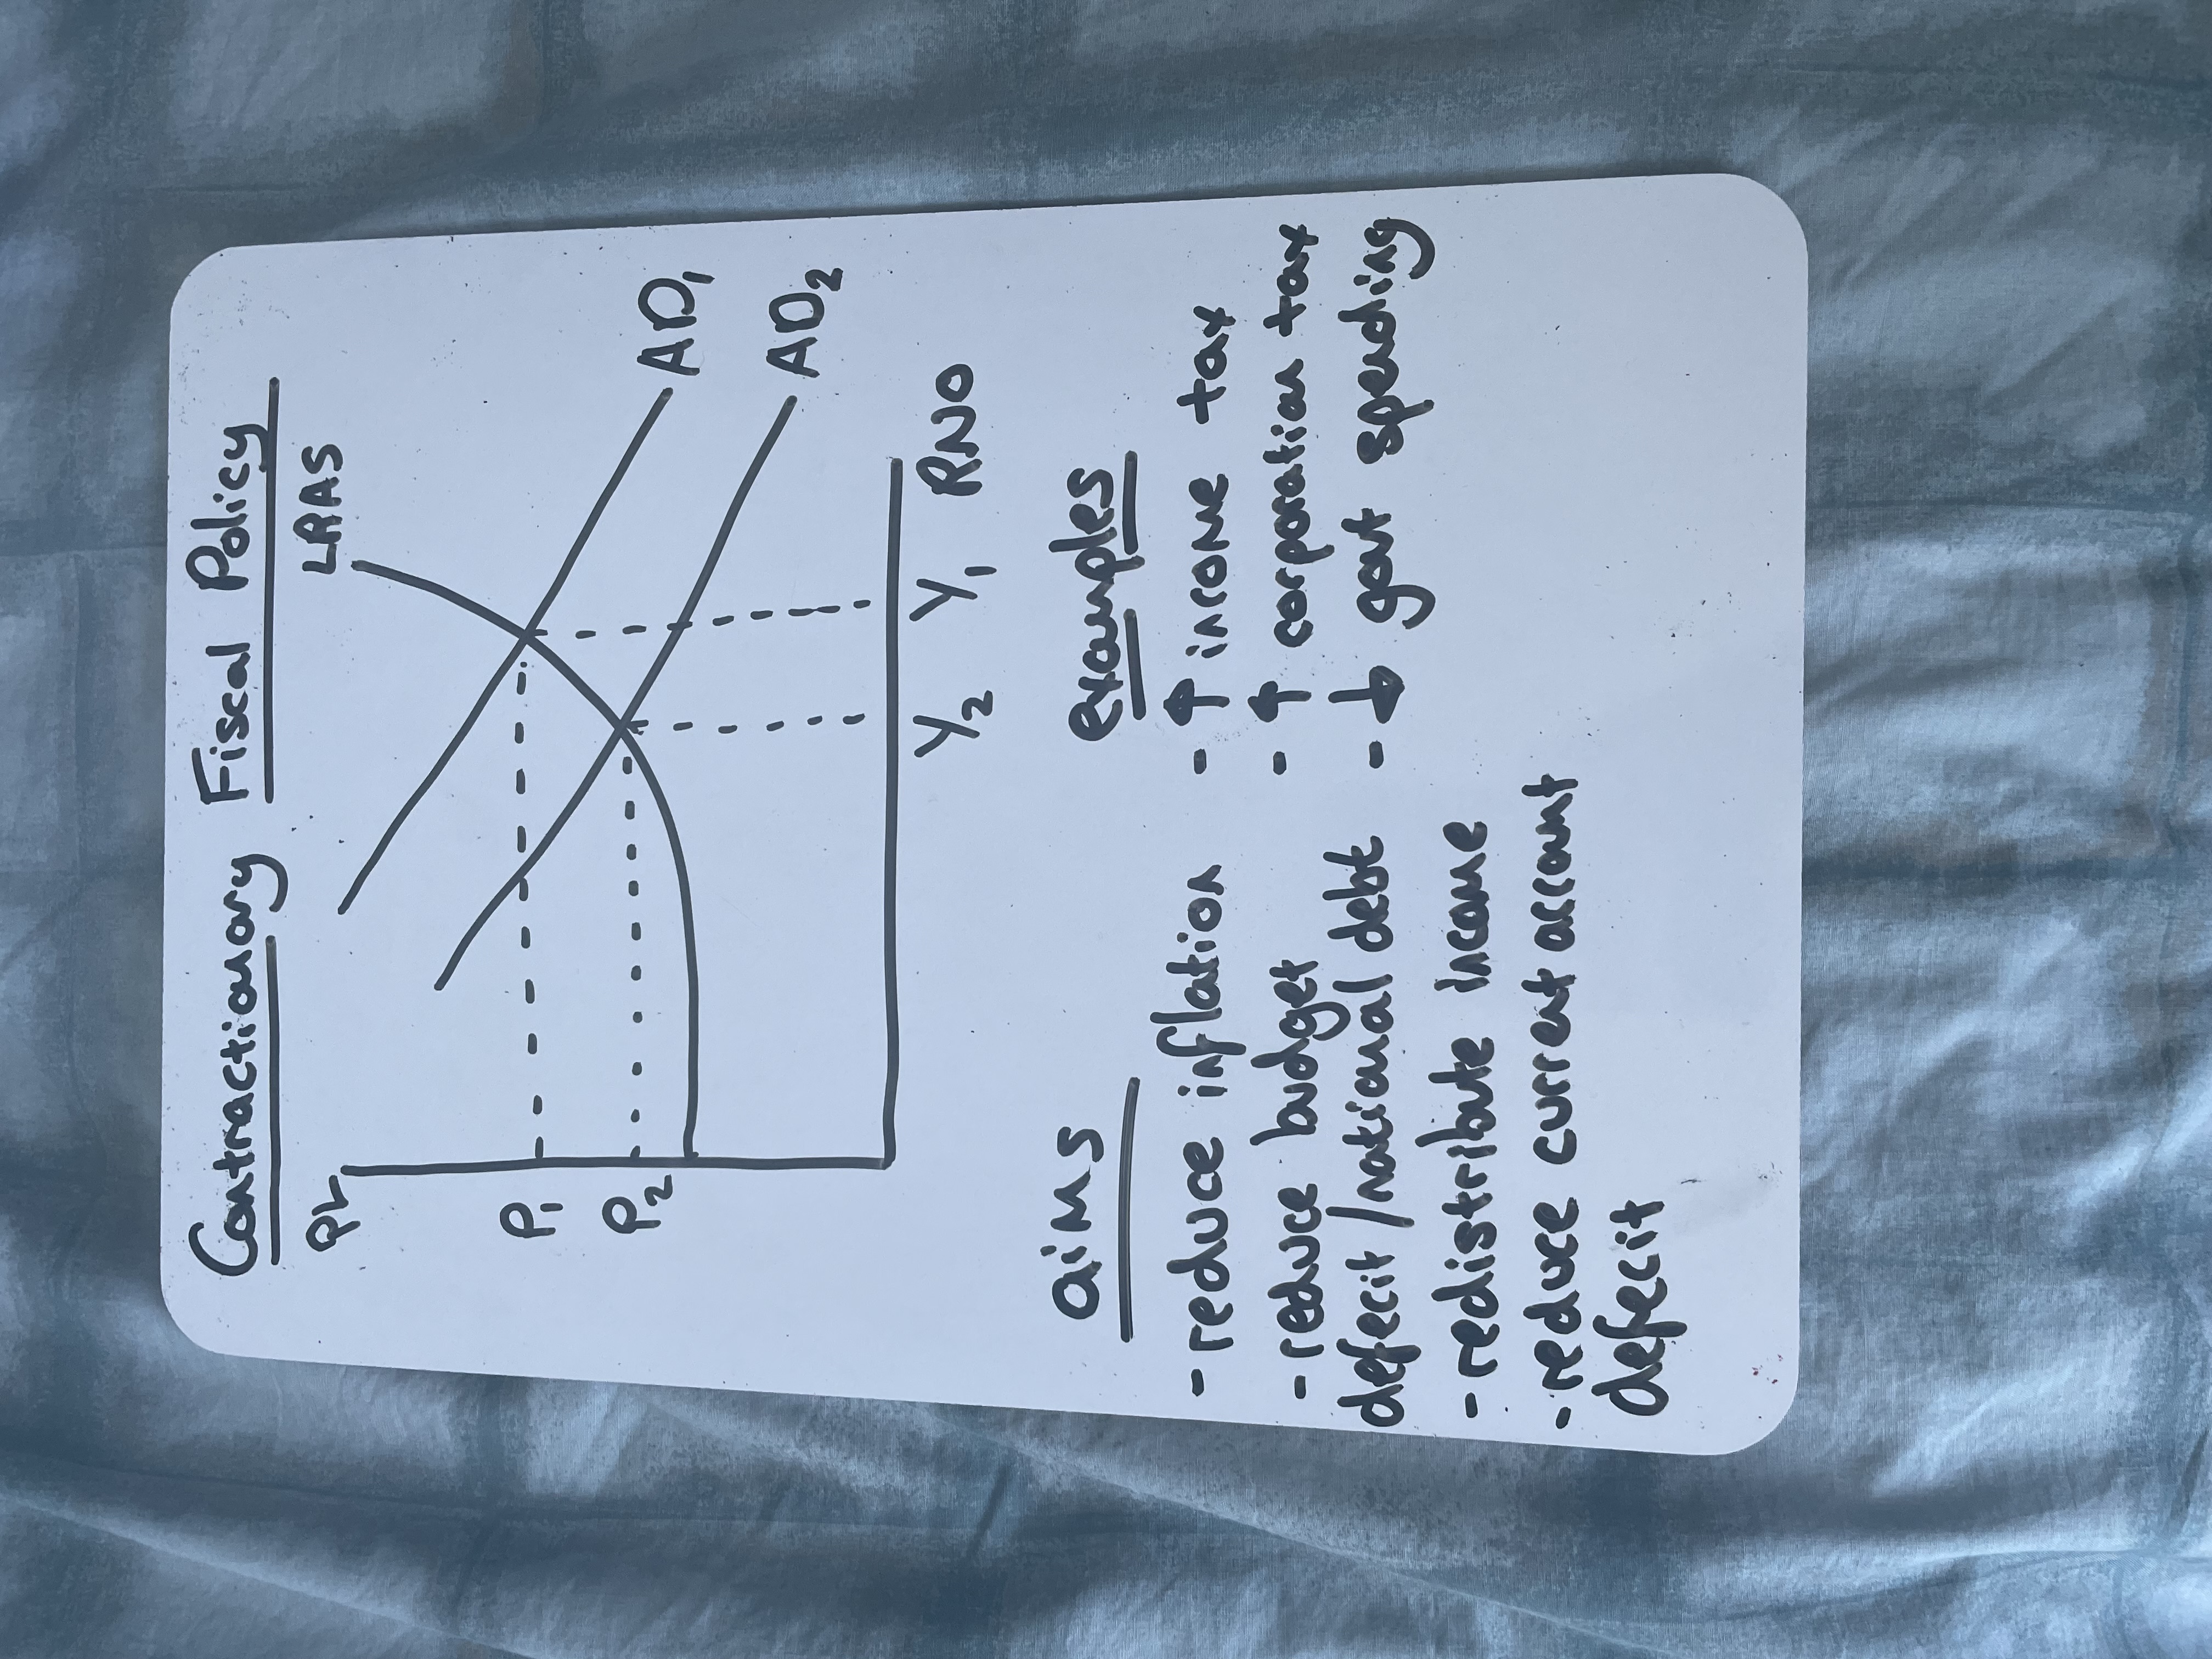 Contractionary Fiscal Policy
PL
LRAS
AD1
P1
AD2
P2
Y2 Y1 RNO
aims
- reduce inflation
- reduce budget
defecit / national debt
- redistribute income
- reduce current account
defecit
examples
- ↑ income tax
- ↑ corporation tax
- ↓ govt spending